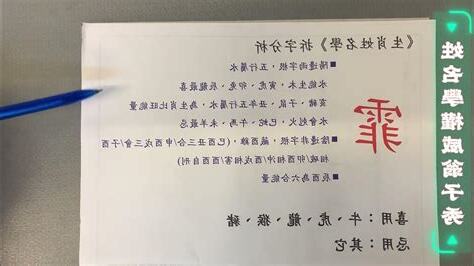 《生肖姓名學》拆字分析
霏
■陽邊雨字根，五行屬水
水能生木，寅虎、卯兔，辰龍最喜
亥豬、子鼠、丑牛五行屬水，為生肖比旺能量
水會剋火，巳蛇、午馬、未羊最忌
■陰邊非字根，藏雞，(巳酉丑三合/申酉戌三會/子酉
相破/卯酉相沖/酉戌相害/酉酉自刑)
■辰酉為六合能量
喜用：牛、虎、龍、猴、豬
忌用：其它
姓名學權威翁子秀